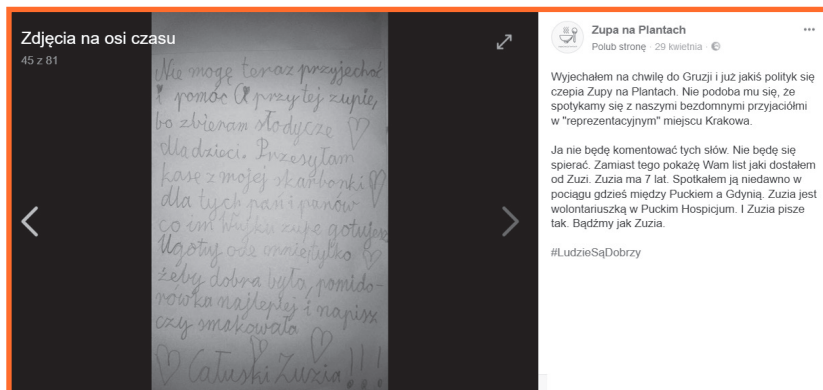 Zdjęcia na osi czasu
45 z 81
Nie mogę teraz przyjechać
i pomóc przy tej zupie,
bo zbieram słodycze
dla dzieci. Przesyłam
kasę z mojej skarbonki
dla tych pań i panów
co im Wujku zupę gotujesz
Ugotuj odemnie tylko
żeby dobra była, pomido-
rówka najlepiej i napisz
czy smakowała
Całuski Zuzia!!!
Zupa na Plantach
Polub stronę · 29 kwietnia ·
Wyjechałem na chwilę do Gruzji i już jakiś polityk się
czepia Zupy na Plantach. Nie podoba mu się, że
spotykamy się z naszymi bezdomnymi przyjaciółmi
w "reprezentacyjnym" miejscu Krakowa.
Ja nie będę komentować tych słów. Nie będę się
spierać. Zamiast tego pokażę Wam list jaki dostałem
od Zuzi. Zuzia ma 7 lat. Spotkałem ją niedawno w
pociągu gdzieś między Puckiem a Gdynią. Zuzia jest
wolontariuszką w Puckim Hospicjum. I Zuzia pisze
tak. Bądźmy jak Zuzia.
#LudzieSąDobrzy